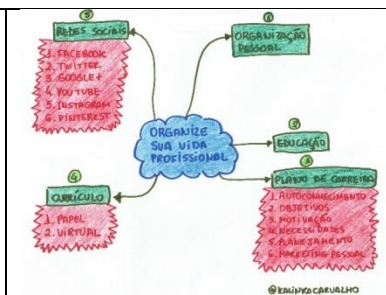 ORGANIZE
SUA VIDA
PROFISSIONAL
1
ORGANIZAÇÃO
PESSOAL
2
EDUCAÇÃO
3
PLANO DE CARREIRA
1. AUTOCONHECIMENTO
2. OBJETIVOS
3. MOTIVAÇÃO
4. NECESSIDADES
5. PLANEJAMENTO
6. MARKETING PESSOAL
4
CURRÍCULO
1. PAPEL
2. VIRTUAL
5
REDES SOCIAIS
1. FACEBOOK
2. TWITTER
3. GOOGLE+
4. YOUTUBE
5. INSTAGRAM
6. PINTEREST
@KALINKACARVALHO